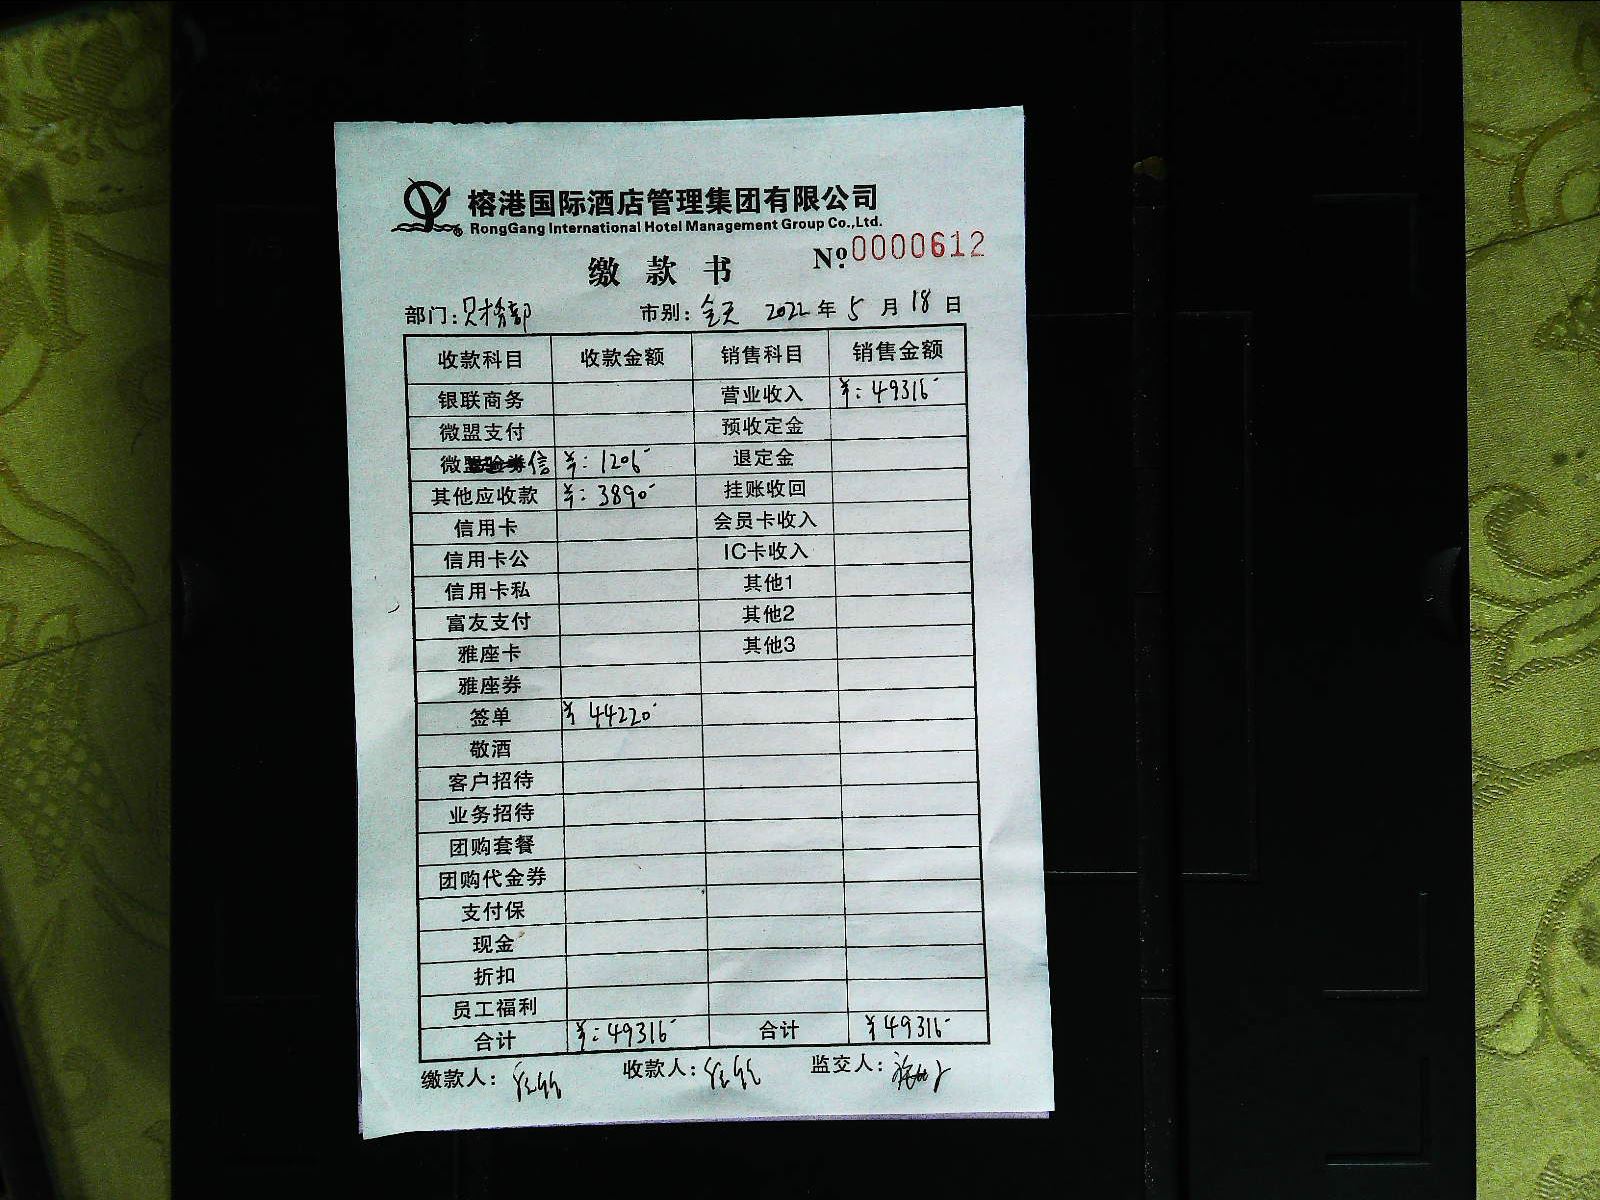 榕港国际酒店管理集团有限公司
RongGang International Hotel Management Group Co.,Ltd.
缴款书 №.0000612
部门:财务部 市别:全天 2022年5月18日
收款科目 收款金额 销售科目 销售金额
银联商务 营业收入 ¥:49316-
微盟支付 预收定金
微信 ¥:1206- 退定金
其他应收款 ¥:3890- 挂账收回
信用卡 会员卡收入
信用卡公 IC卡收入
信用卡私 其他1
富友支付 其他2
雅座卡 其他3
雅座券
签单 ¥44220-
敬酒
客户招待
业务招待
团购套餐
团购代金券
支付保
现金
折扣
员工福利
合计 ¥:49316- 合计 ¥49316-
缴款人: 收款人: 监交人: